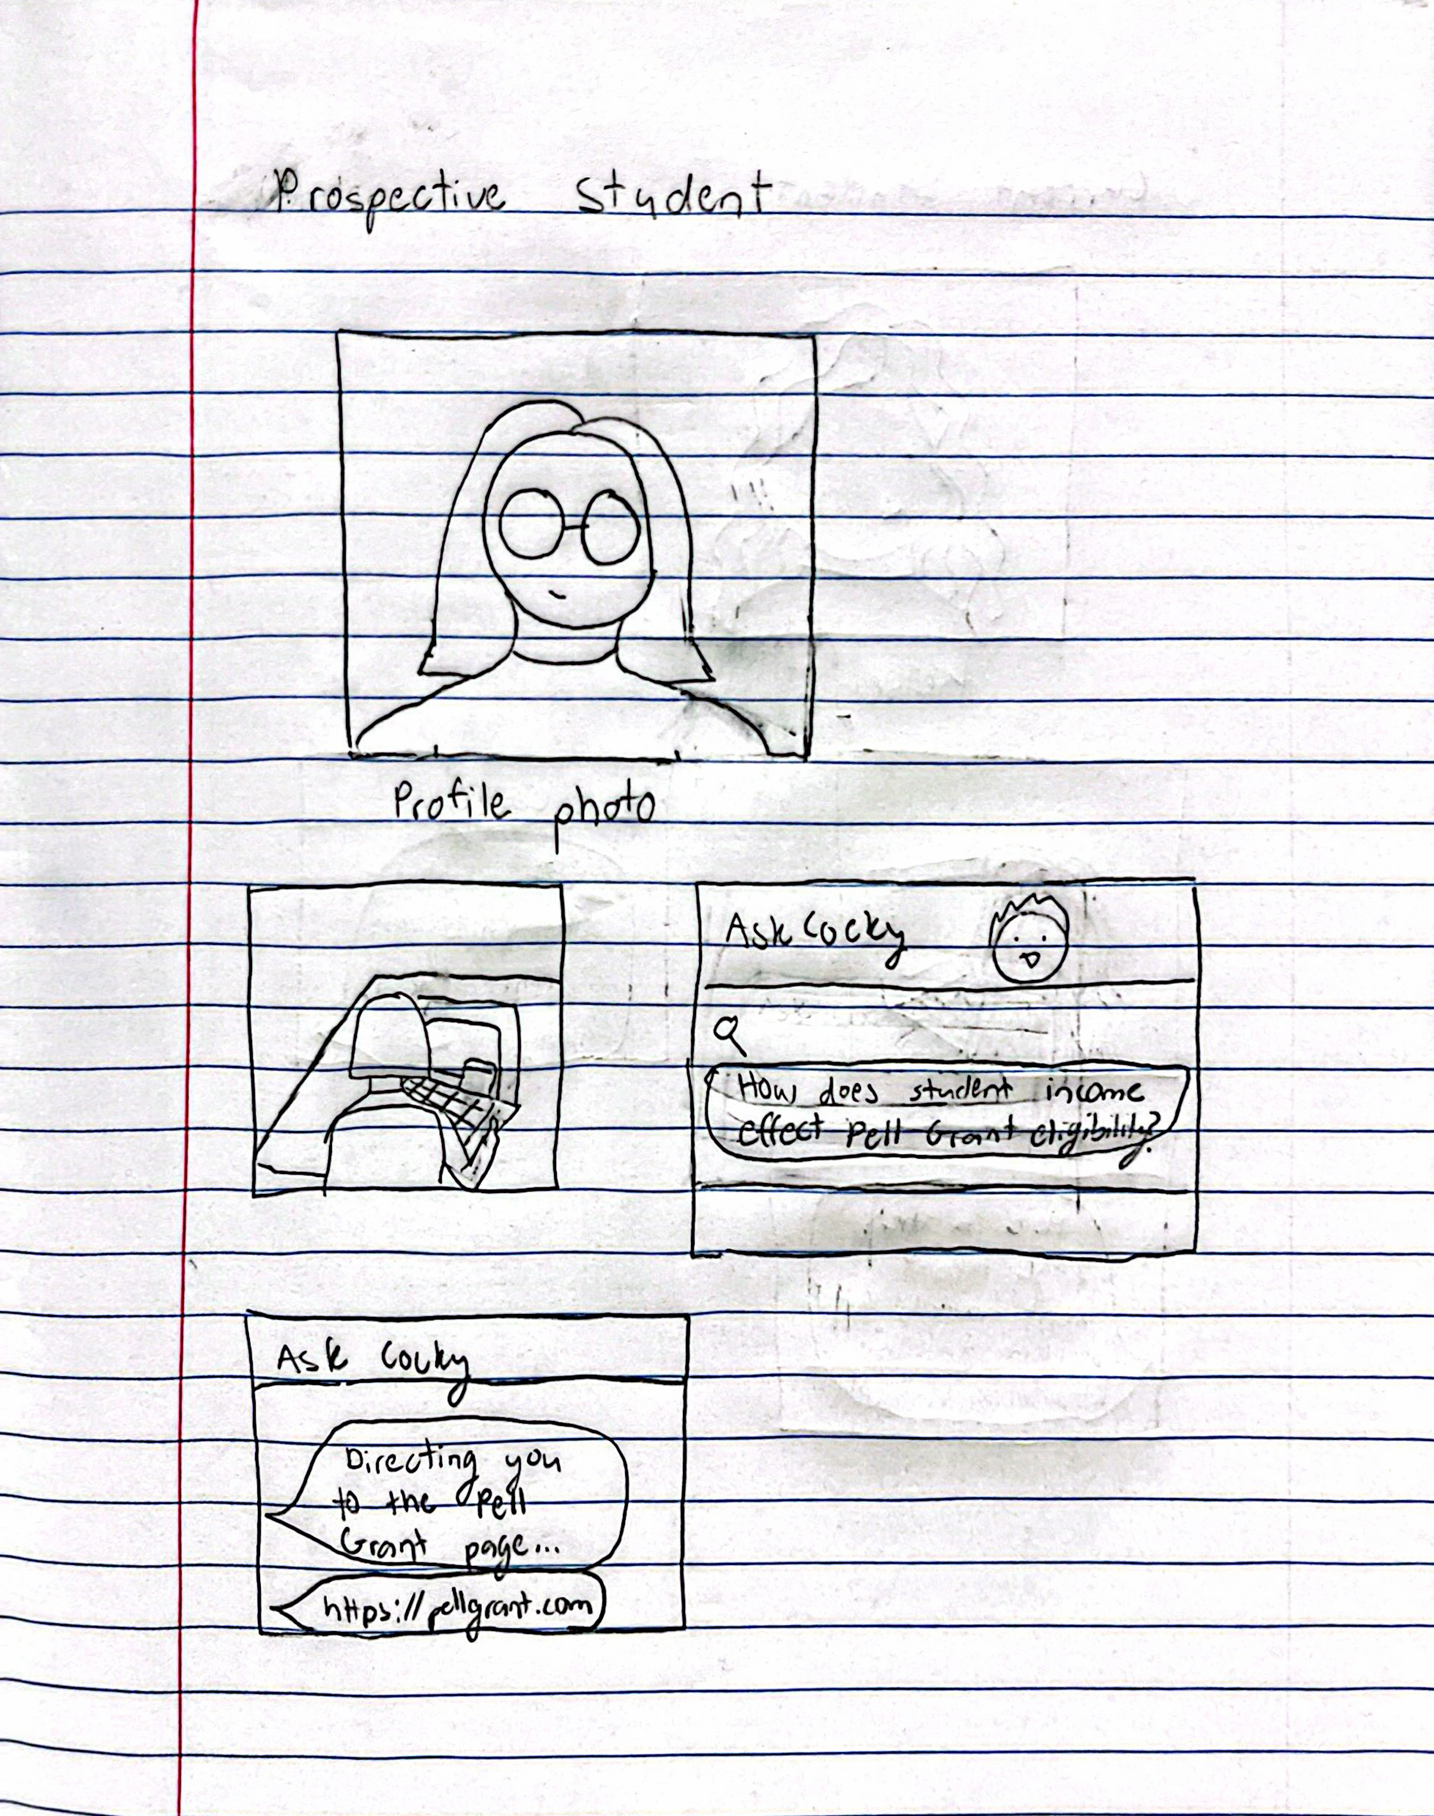 Prospective student
Profile photo
Ask Cocky
How does student income
effect Pell Grant eligibility?
Ask Cocky
Directing you
to the Pell
Grant page...
https://pellgrant.com